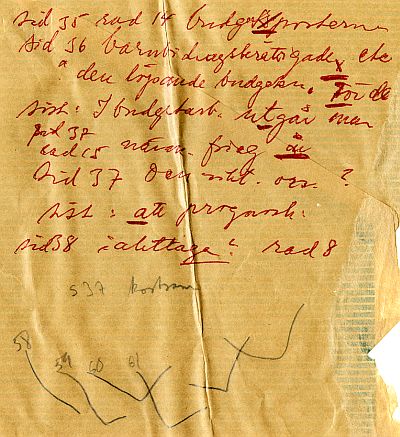 sid 35 rad 14 budgetposterna
sid 36 etc
" den löpande budgeten. För de
sist: I budgetarb. utgår man
sid 37
rad 15 är
sid 37 Den ?
sist: att prognos.
sid 38 iakttaga? rad 8
s 37
58
59 60 61